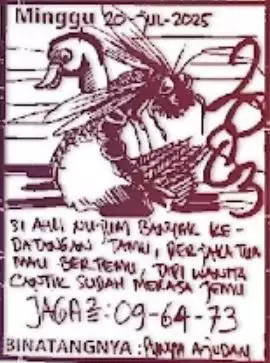 Minggu 20-JUL-2025
SI AHLI NUJUM BANYAK KE-
DATANGAN TAMU, PERJAKA TUA
MAU BERTEMU, TAPI WANITA
CANTIK SUDAH MERASA JEMU
JAGA2: 09-64-73
BINATANGNYA: AJUDAN